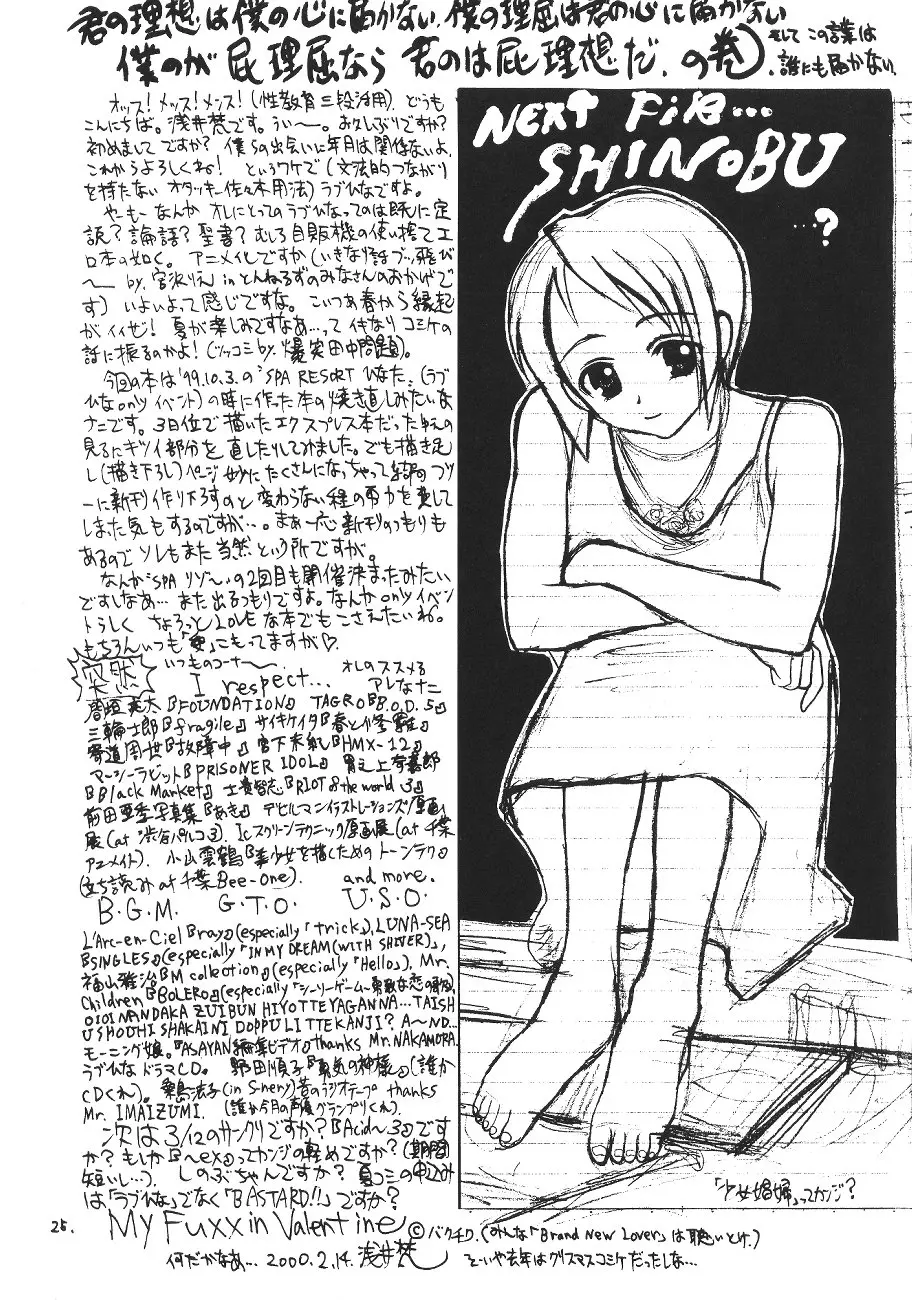 君の理想は僕の心に届かない、僕の理屈は君の心に届かない
僕のが屁理屈なら 君のは屁理想だ、の巻
そして この言葉は
誰にも届かない。
NEXT FiRE...
SHINOBU
...?
オッス!メッス!メンス!(性教育三段活用)どうも
こんにちは。浅井梵です。うぃ〜。お久しぶりですか?
初めましてですか? 僕らの出会いに年月は関係ないよ、
これからよろしくね! というワケで(文法的つながり
を持たない オタッキー佐々木用法)ラブひなですよ。
やーもーなんか オレにとってのラブひなってのは既に定
説?論語?聖書?むしろ自販機の使い捨てエ
ロ本の如く。アニメ化ですか(いきなり話ブッ飛び
〜 by.宮沢りえ in とんねるずのみなさんのおかげで
す)いよいよって感じですな。こいつあ春から縁起
がイイぜ! 夏が楽しみですなあ...ってイキなりコミケの
話に振るのかよ!(ツッコミby.爆笑田中問題)。
今回の本は'99.10.3.の"SPA RESORT ひなた"(ラブ
ひなonlyイベント)の時に作った本の焼き直しみたいな
ナニです。3日位で描いたエクスプレス本だった
見るにキツイ部分を直したりしてみました。でも描き足
し(描き下ろし)ページ妙にたくさんになっちゃって結局フツ
ーに新刊作り下ろすのと変わらない程の労力を費して
しまった気もするのですが...。まぁ一応新刊のつもりも
あるのでソレもまた当然という所ですが。
なんか"SPAリゾ〜"の2回目も開催決まったみたい
ですしなあ... また出るつもりですよ。なんかonlyイベン
トらしく ちょろっとLOVEな本でもこさえたいね。
もちろんいつも「愛」こもってますが♡
突然
いつものコーナー〜
I respect...
オレのススメる
アレなナニ
『FOUNDATION』 TAGRO『B.O.D.5』
三輪士郎『fragile』 サイキケイタ『春とか冬』
寄道周世『故障中』 宮下未紀『HMX-12』
マーシーラビット『PRISONER IDOL』 胃之上奇嘉郎
『Black Market』 士貴智志『RIOT of the world 3』
前田亜季写真集『あき』 デビルマンイラストレーションズ原画
展(at 渋谷パルコ3). Icスクリーンテクニック原画展(at 千葉
アニメイト). 小山雲鶴『美少女を描くためのトーンテク』
(立ち読み at 千葉Bee-One). and more.
B.G.M. G.T.O. U.S.O.
L'Arc-en-Ciel『ray』(especially「trick」), LUNA-SEA
『SINGLES』(especially「IN MY DREAM(WITH SHIVER)」),
福山雅治『M collection』(especially「Hello」), Mr.
Children『BOLERO』(especially「シーソーゲーム〜勇敢な恋の歌」)
OIOI NANDAKA ZUIBUN HIYOTTEYAGANNA...TAISH
USHOUHI SHAKAINI DOPPULITTEKANJI? A〜ND...
モーニング娘。『ASAYAN編集ビデオ』thanks Mr.NAKAMORA.
ラブひなドラマCD。 野田順子『勇気の神様』(誰か
CDくれ)。 桑島法子(in S-hery)昔のラジオテープ thanks
Mr. IMAIZUMI. (誰か今月の声優グランプリくれ).
次は3/12のサンクリですか?『Acid〜3』です
か?もしか『〜ex』ってカンジの軽めですか?(期間
短いし...). しのぶちゃんですか?夏コミの申込み
は「ラブひな」でなく「BASTARD!!」ですか?
「少女娼婦」ってカンジ?
26.
My Fuxxin Valentine ©バクチク.(みんな「Brand New Lover」は聴いとけ.)
何だかなあ... 2000.2.14. 浅井梵 そーいや去年はクリスマスコミケだったしな...